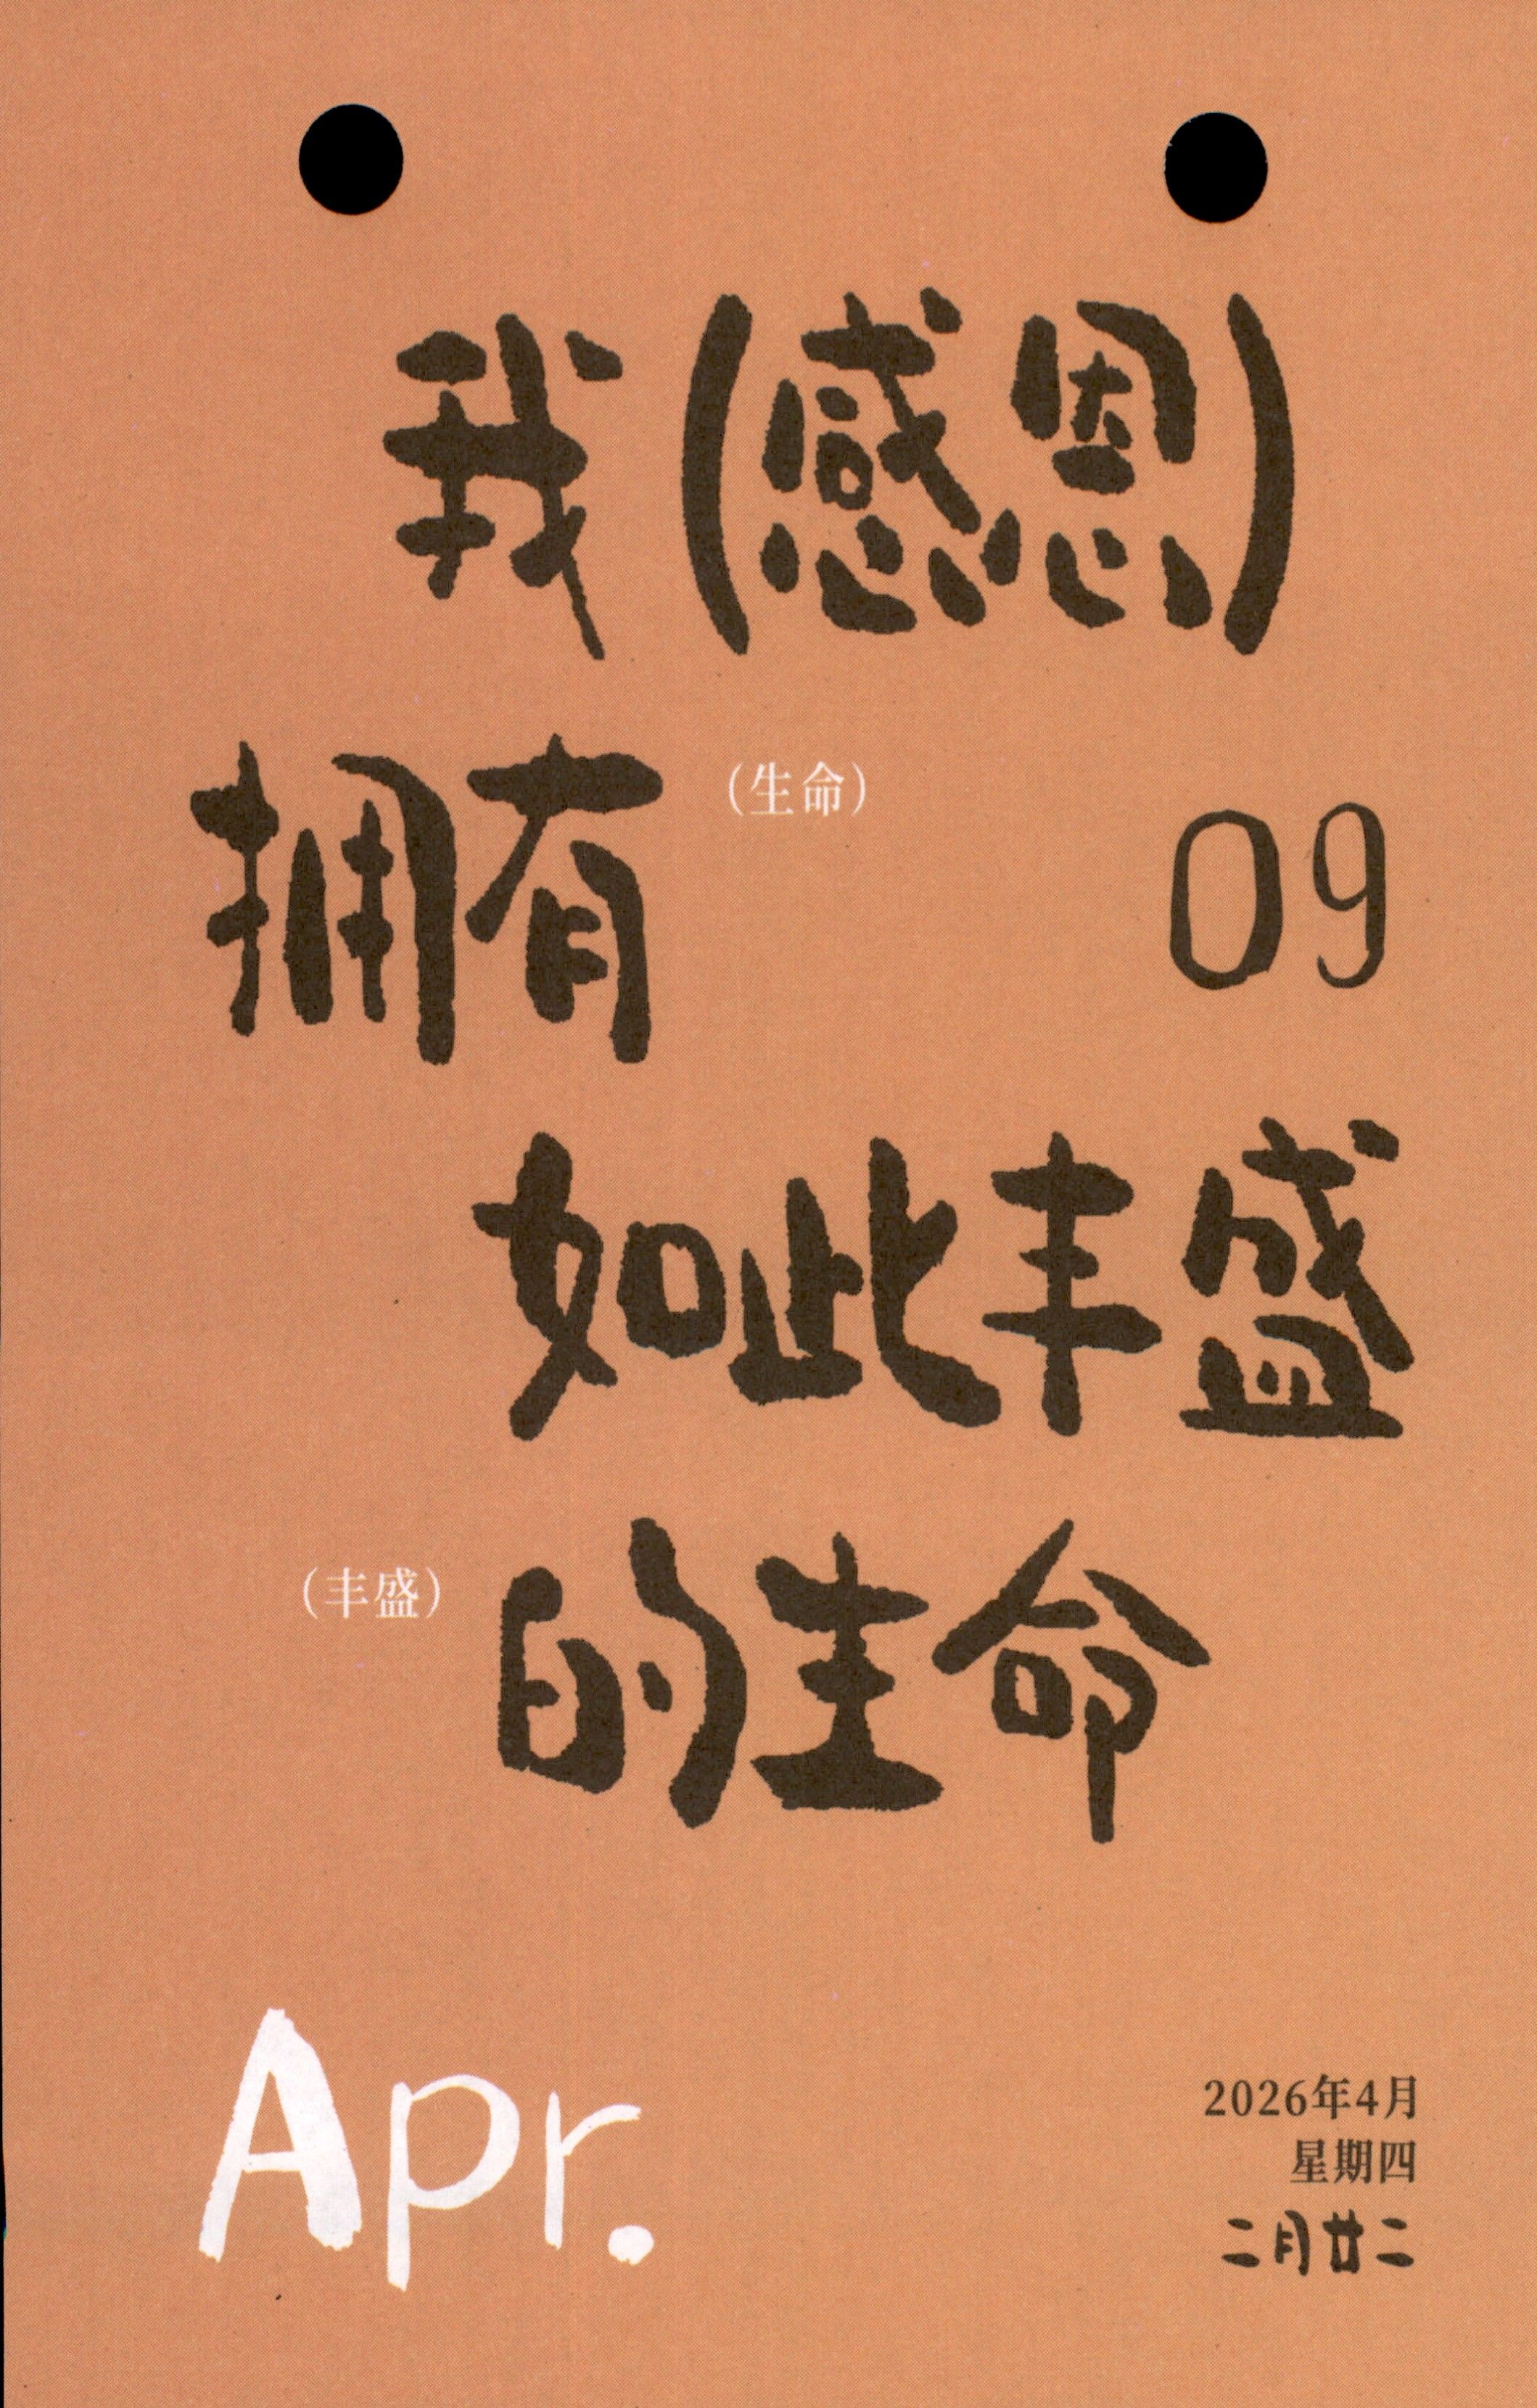 我(感恩)
拥有
(生命)
09
如此丰盛
(丰盛)
的生命
Apr.
2026年4月
星期四
二月廿二